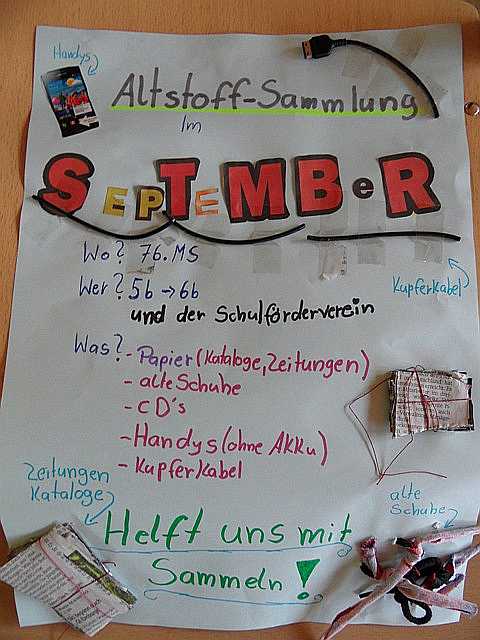 Handys
Altstoff-Sammlung
Im
SEPTEMBeR
Wo? 76.MS
Wer? 5b → 6b
und der Schulförderverein
Kupferkabel
Was? - Papier (Kataloge, Zeitungen)
- alte Schuhe
- CD's
- Handys (ohne AKKu)
- Kupferkabel
Zeitungen
Kataloge
alte
Schuhe
Helft uns mit
Sammeln!